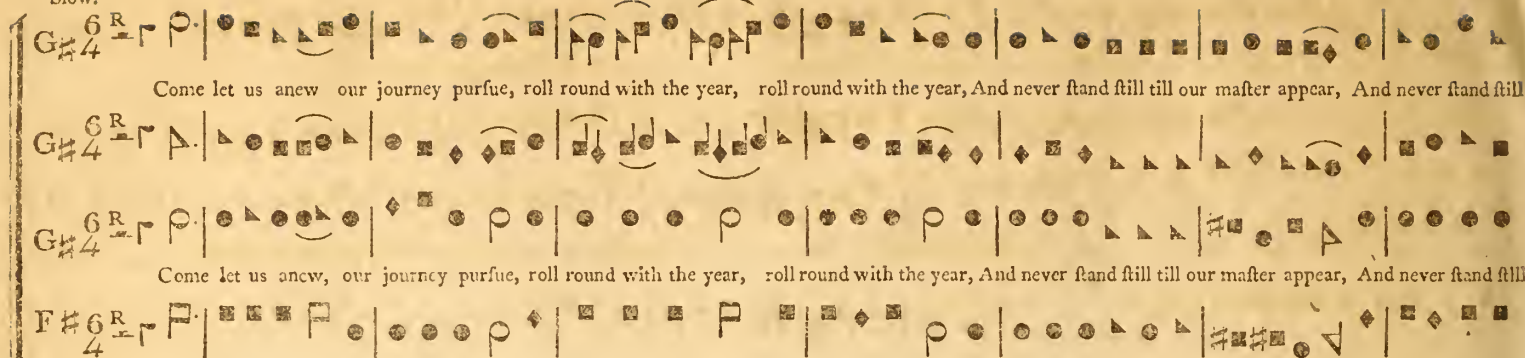 Slow.
G♯ 6 4 R
Come let us anew our journey purſue, roll round with the year, roll round with the year, And never ſtand ſtill till our maſter appear, And never ſtand ſtill
G♯ 6 4 R
G♯ 6 4 R
Come let us anew, our journey purſue, roll round with the year, roll round with the year, And never ſtand ſtill till our maſter appear, And never ſtand ſtill
F♯ 6 4 R